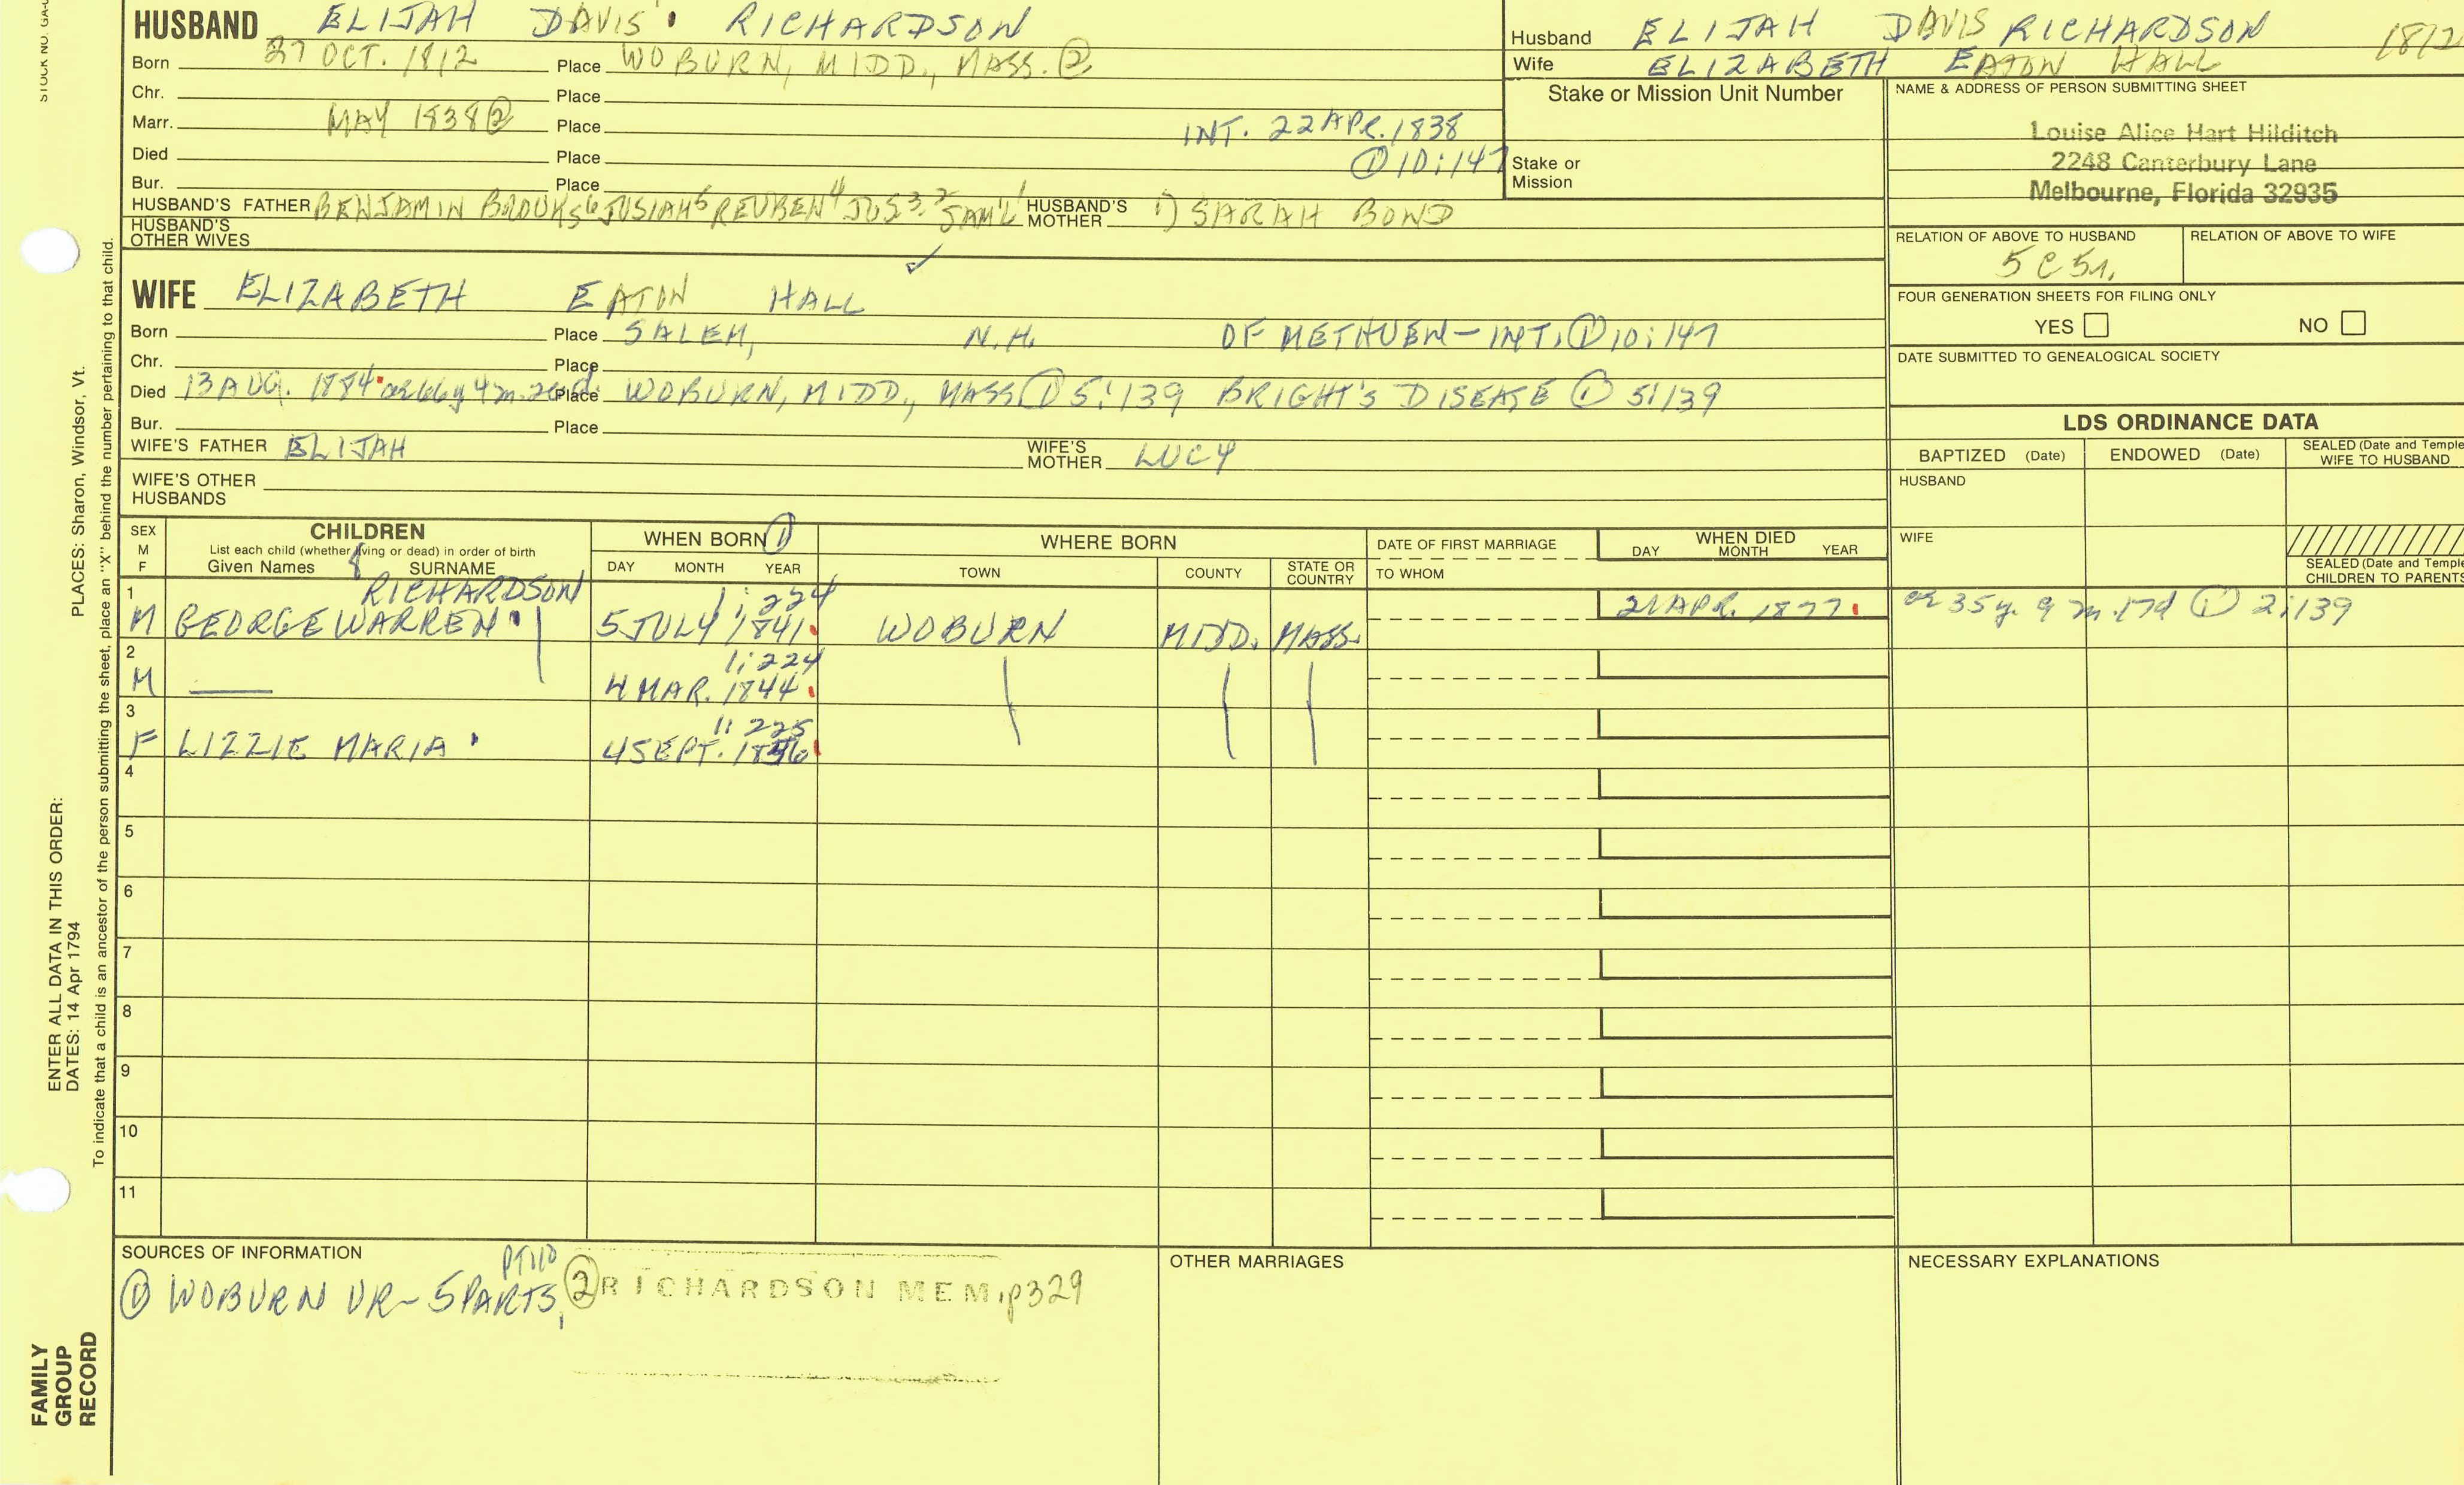 STOCK NO. GA-
HUSBAND ELIJAH DAVIS RICHARDSON
Born 27 OCT. 1812 Place WOBURN, MIDD., MASS. ②
Chr. Place
Marr. MAY 1838 ② Place INT. 22 APR. 1838
Died Place ① 10:147
Bur. Place
HUSBAND'S FATHER BENJAMIN BROOKS6 JOSIAH5 REUBEN4 JOS3.2 SAM'L1 HUSBAND'S MOTHER 1) SARAH BOND
HUSBAND'S OTHER WIVES
WIFE ELIZABETH EATON HALL
Born Place SALEM, N.H. OF METHUEN - INT. ① 10:147
Chr. Place
Died 13 AUG. 1884 ae 66y 4m. Place WOBURN, MIDD., MASS ① 5:139 BRIGHT'S DISEASE ① 5:139
Bur. Place
WIFE'S FATHER ELIJAH WIFE'S MOTHER LUCY
WIFE'S OTHER HUSBANDS
Husband ELIJAH DAVIS RICHARDSON 1812
Wife ELIZABETH EATON HALL
Stake or Mission Unit Number
Stake or Mission
NAME & ADDRESS OF PERSON SUBMITTING SHEET
Louise Alice Hart Hilditch
2248 Canterbury Lane
Melbourne, Florida 32935
RELATION OF ABOVE TO HUSBAND RELATION OF ABOVE TO WIFE
5 C 5r.
FOUR GENERATION SHEETS FOR FILING ONLY
YES NO
DATE SUBMITTED TO GENEALOGICAL SOCIETY
LDS ORDINANCE DATA
BAPTIZED (Date) ENDOWED (Date) SEALED (Date and Temple) WIFE TO HUSBAND
HUSBAND
WIFE
SEALED (Date and Temple) CHILDREN TO PARENTS
SEX M F
CHILDREN
List each child (whether living or dead) in order of birth
Given Names SURNAME
WHEN BORN ①
DAY MONTH YEAR
WHERE BORN
TOWN COUNTY STATE OR COUNTRY
DATE OF FIRST MARRIAGE
TO WHOM
WHEN DIED
DAY MONTH YEAR
1 RICHARDSON 1:224
M GEORGE WARREN 5 JULY 1841 WOBURN MIDD. MASS. 21 APR. 1877 ae 35y. 9m. 17d ① 2:139
2 1:224
M — 4 MAR. 1844
3 1:225
F LIZZIE MARIA 4 SEPT.
4
5
6
7
8
9
10
11
SOURCES OF INFORMATION
① WOBURN VR - 5 PARTS, PT 110 ② RICHARDSON MEM. p329
OTHER MARRIAGES
NECESSARY EXPLANATIONS
PLACES: Sharon, Windsor, Vt.
To indicate that a child is an ancestor of the person submitting the sheet, place an "X" behind the number pertaining to that child.
ENTER ALL DATA IN THIS ORDER:
DATES: 14 Apr 1794
FAMILY GROUP RECORD